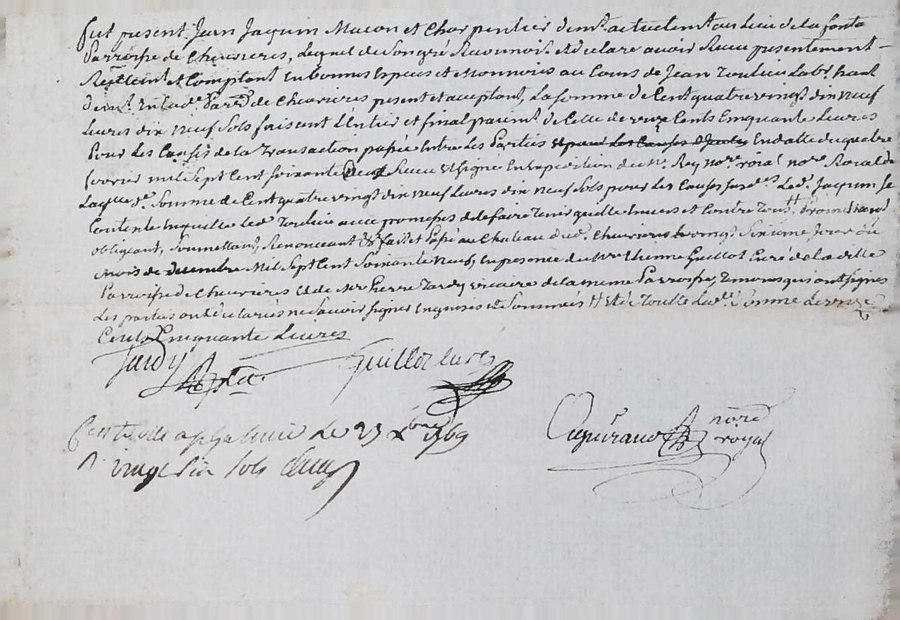 fut present Jean Jaquin Macon et Charpentier dem.t actuelemt au Lieu de la fonta
Parroisse de Chevrieres, Lequel de Son gré Reconnoit et declare avoir Recu presentement
Reellement et Comptant En bonnes Especes et Monnoies au Cours de Jean Toulieu Lab.r hant
dem.t En lad.e Parr.e de Chevrieres present et acceptant, La Somme de Cent quatre vingt dix neuf
Livres dix neuf Sols faisant L'Entier et final paiement de Celle de onze Cents Cinquante Livres
Pour Les Causes de la Transaction passée Entre Les Parties En datte du quatre
fevrier mil Sept Cent Soixante Recue et Signée En Expedition de M.e Rey No.re roial
Laquelle Somme de Cent quatre vingt dix neuf Livres dix neuf Sols pour Les Causes Susd.es Led. Jaquin Se
Contente En quitte Led. Toulieu avec promesses de le faire Tenir quitte Envers et Contre Tous
obligeant, Soumettant, Renonceant &c fait et Passé au Chateau dud. Chevrieres Le vingt Sixieme Jour du
Mois de decembre Mil Sept Cent Soixante Neuf, En presence de M.re Etienne Guillot Curé de la ditte
Parroisse de Chevrieres Et de M.re Pierre Tardy vicaire de la meme Parroisse, Temoins qui ont Signés
Les parties ont declarées ne Scavoir Signer Enquises et Sommées Toutte Lad.e Somme de onze
Cents Cinquante Livres
Tardy Guillot Curé
le 27 Xbre 1769
R vingt Six Sols
no.re royal